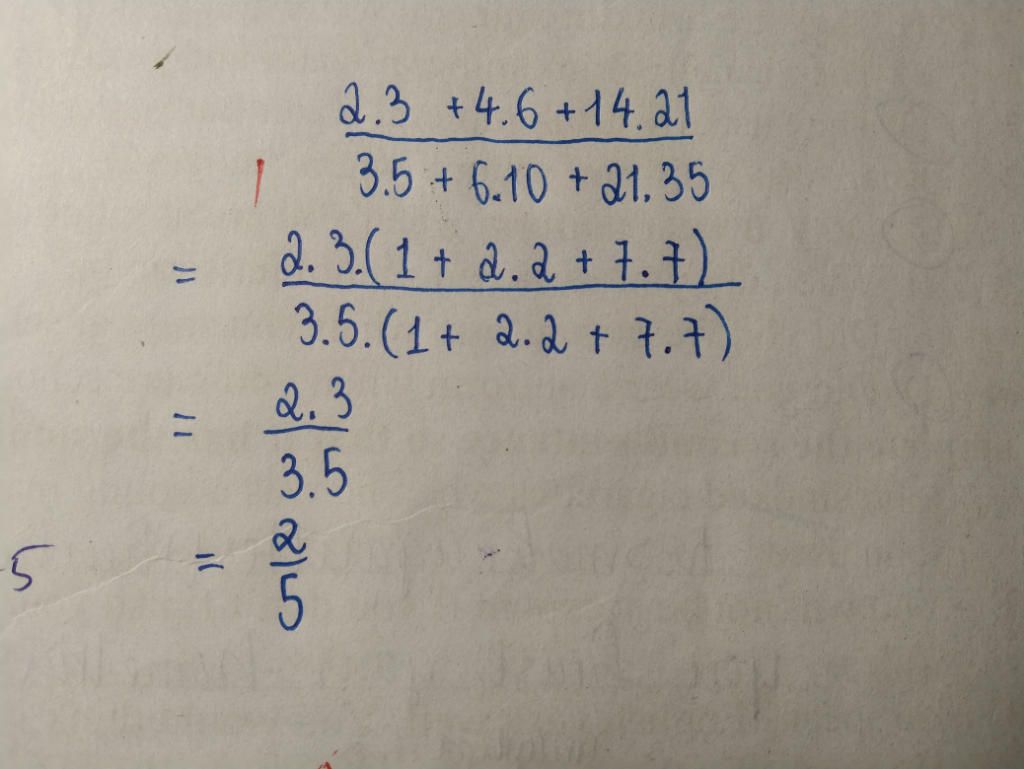 2.3 + 4.6 + 14.21
3.5 + 6.10 + 21.35
= 2.3.(1 + 2.2 + 7.7)
3.5.(1 + 2.2 + 7.7)
= 2.3
3.5
5 = 2
5